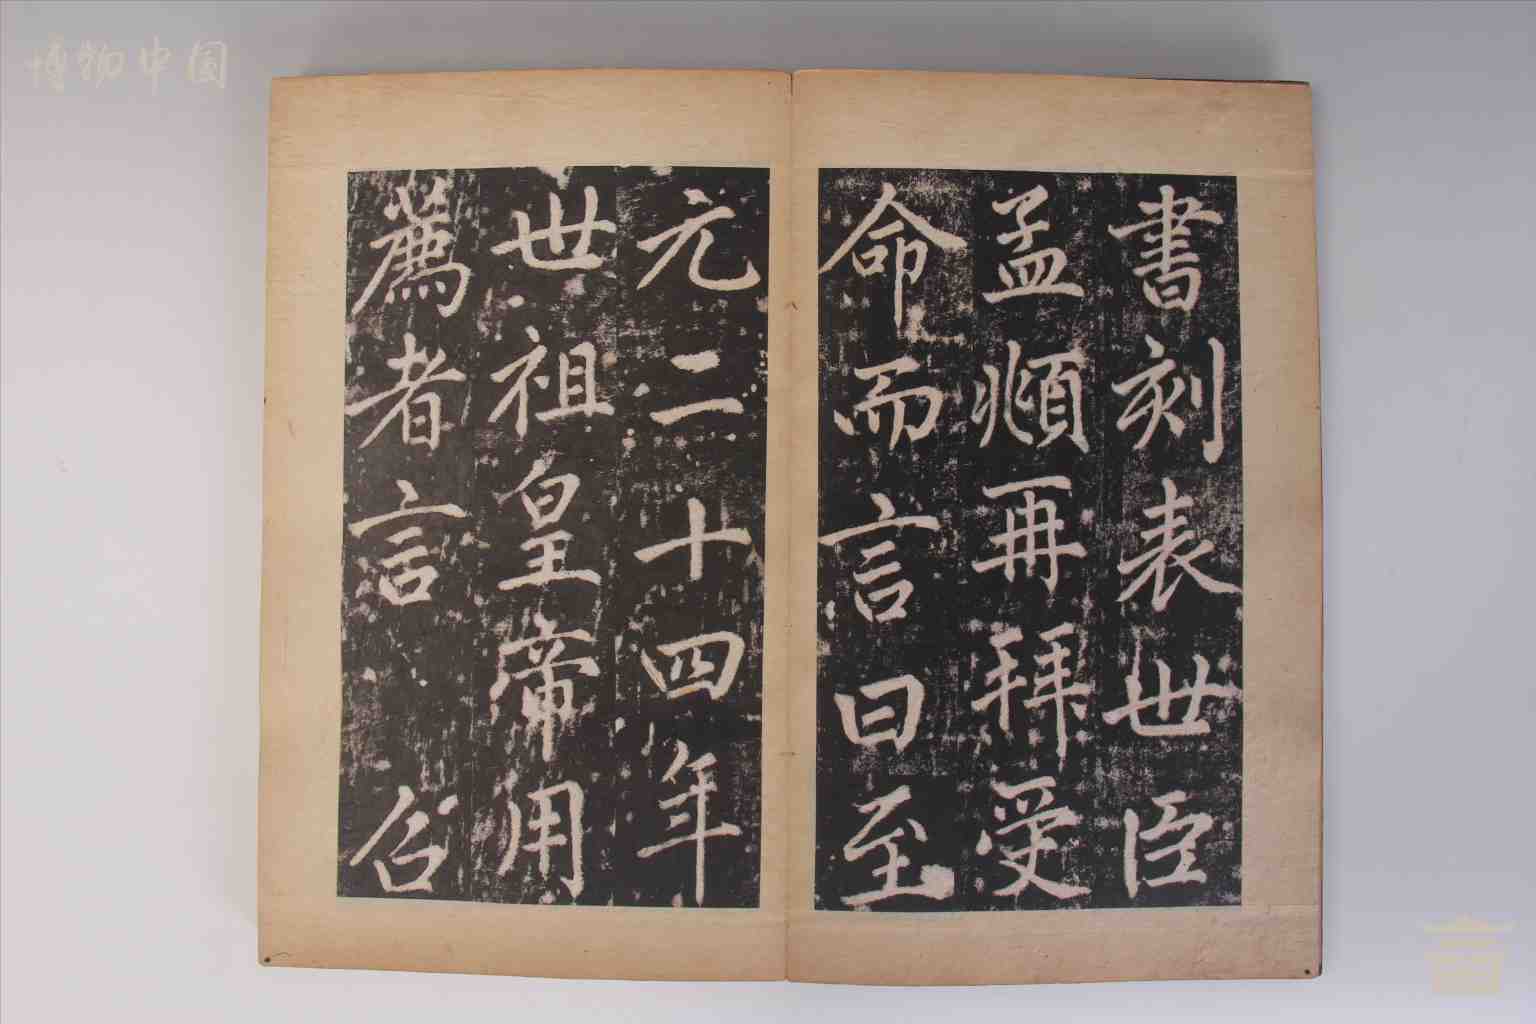 博物中国
書刻表世臣
孟頫再拜受
命而言曰至
元二十四年
世祖皇帝用
薦者言召